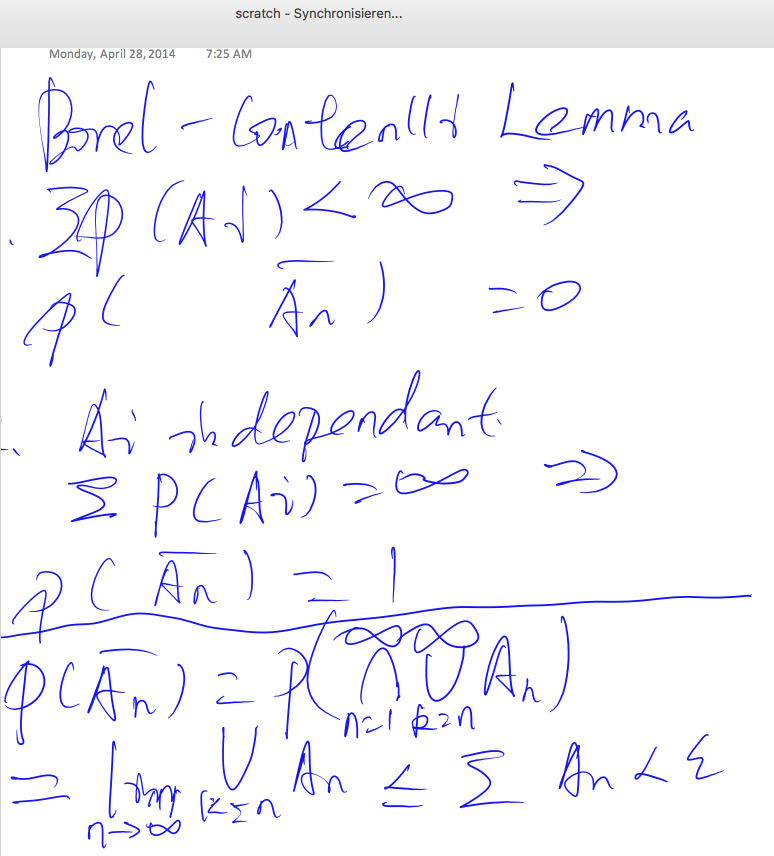 scratch - Synchronisieren...
Monday, April 28, 2014 7:25 AM
Borel - Contenlli Lemma
∑p(Aj) < ∞ ⇒
p( A̅n̅ ) = 0
Ai independant.
∑ P(Ai) = ∞ ⇒
p( A̅n̅ ) = 1
p(A̅n̅) = P(⋂_{n=1}^{∞} ⋃_{k=n}^{∞} An)
= lim_{n→∞} ⋃_{k≥n} An ≤ ∑ An < ε